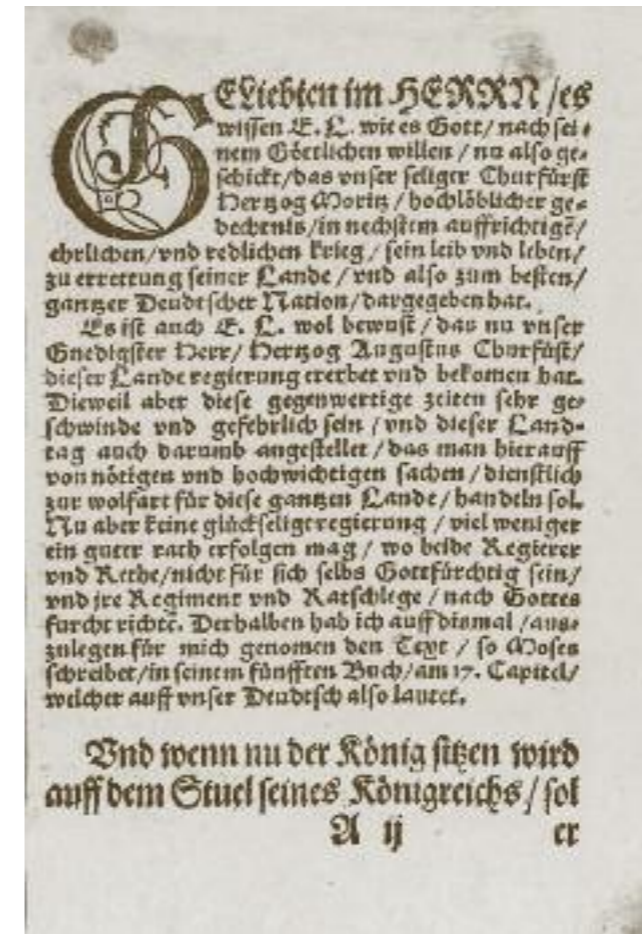 GELiebten im HERRN /es
wissen E. L. wie es Gott/ nach sei⸗
nem Göttlichen willen / nu also ge⸗
schickt/das vnser seliger Churfürst
Hertzog Moritz / hochlöblicher ge⸗
dechtnis/in nechstem auffrichtigē/
ehrlichen/vnd redlichen krieg / sein leib vnd leben/
zu errettung seiner Lande / vnd also zum besten/
gantzer Deudtscher Nation/dargegeben hat.
Es ist auch E. L. wol bewust / das nu vnser
Gnedigster Herr/ Hertzog Augustus Churfüst/
dieser Lande regierung ererbet vnd bekomen hat.
Dieweil aber diese gegenwertige zeiten sehr ge⸗
schwinde vnd gefehrlich sein / vnd dieser Land⸗
tag auch darumb angestellet / das man hierauff
von nötigen vnd hochwichtigen sachen / dienstlich
zur wolfart für diese gantzen Lande/ handeln sol.
Nu aber keine glückselige regierung / viel weniger
ein guter rath erfolgen mag / wo beide Regierer
vnd Rethe/nicht für sich selbs Gottfürchtig sein/
vnd jre Regiment vnd Ratschlege / nach Gottes
furcht richtē. Derhalben hab ich auff dismal /aus⸗
zulegen für mich genomen den Text / so Moses
schreibet/in seinem fünfften Buch/am 17. Capitel/
welcher auff vnser Deudtsch also lautet.
Vnd wenn nu der König sitzen wird
auff dem Stuel seines Königreichs / sol
A ij er